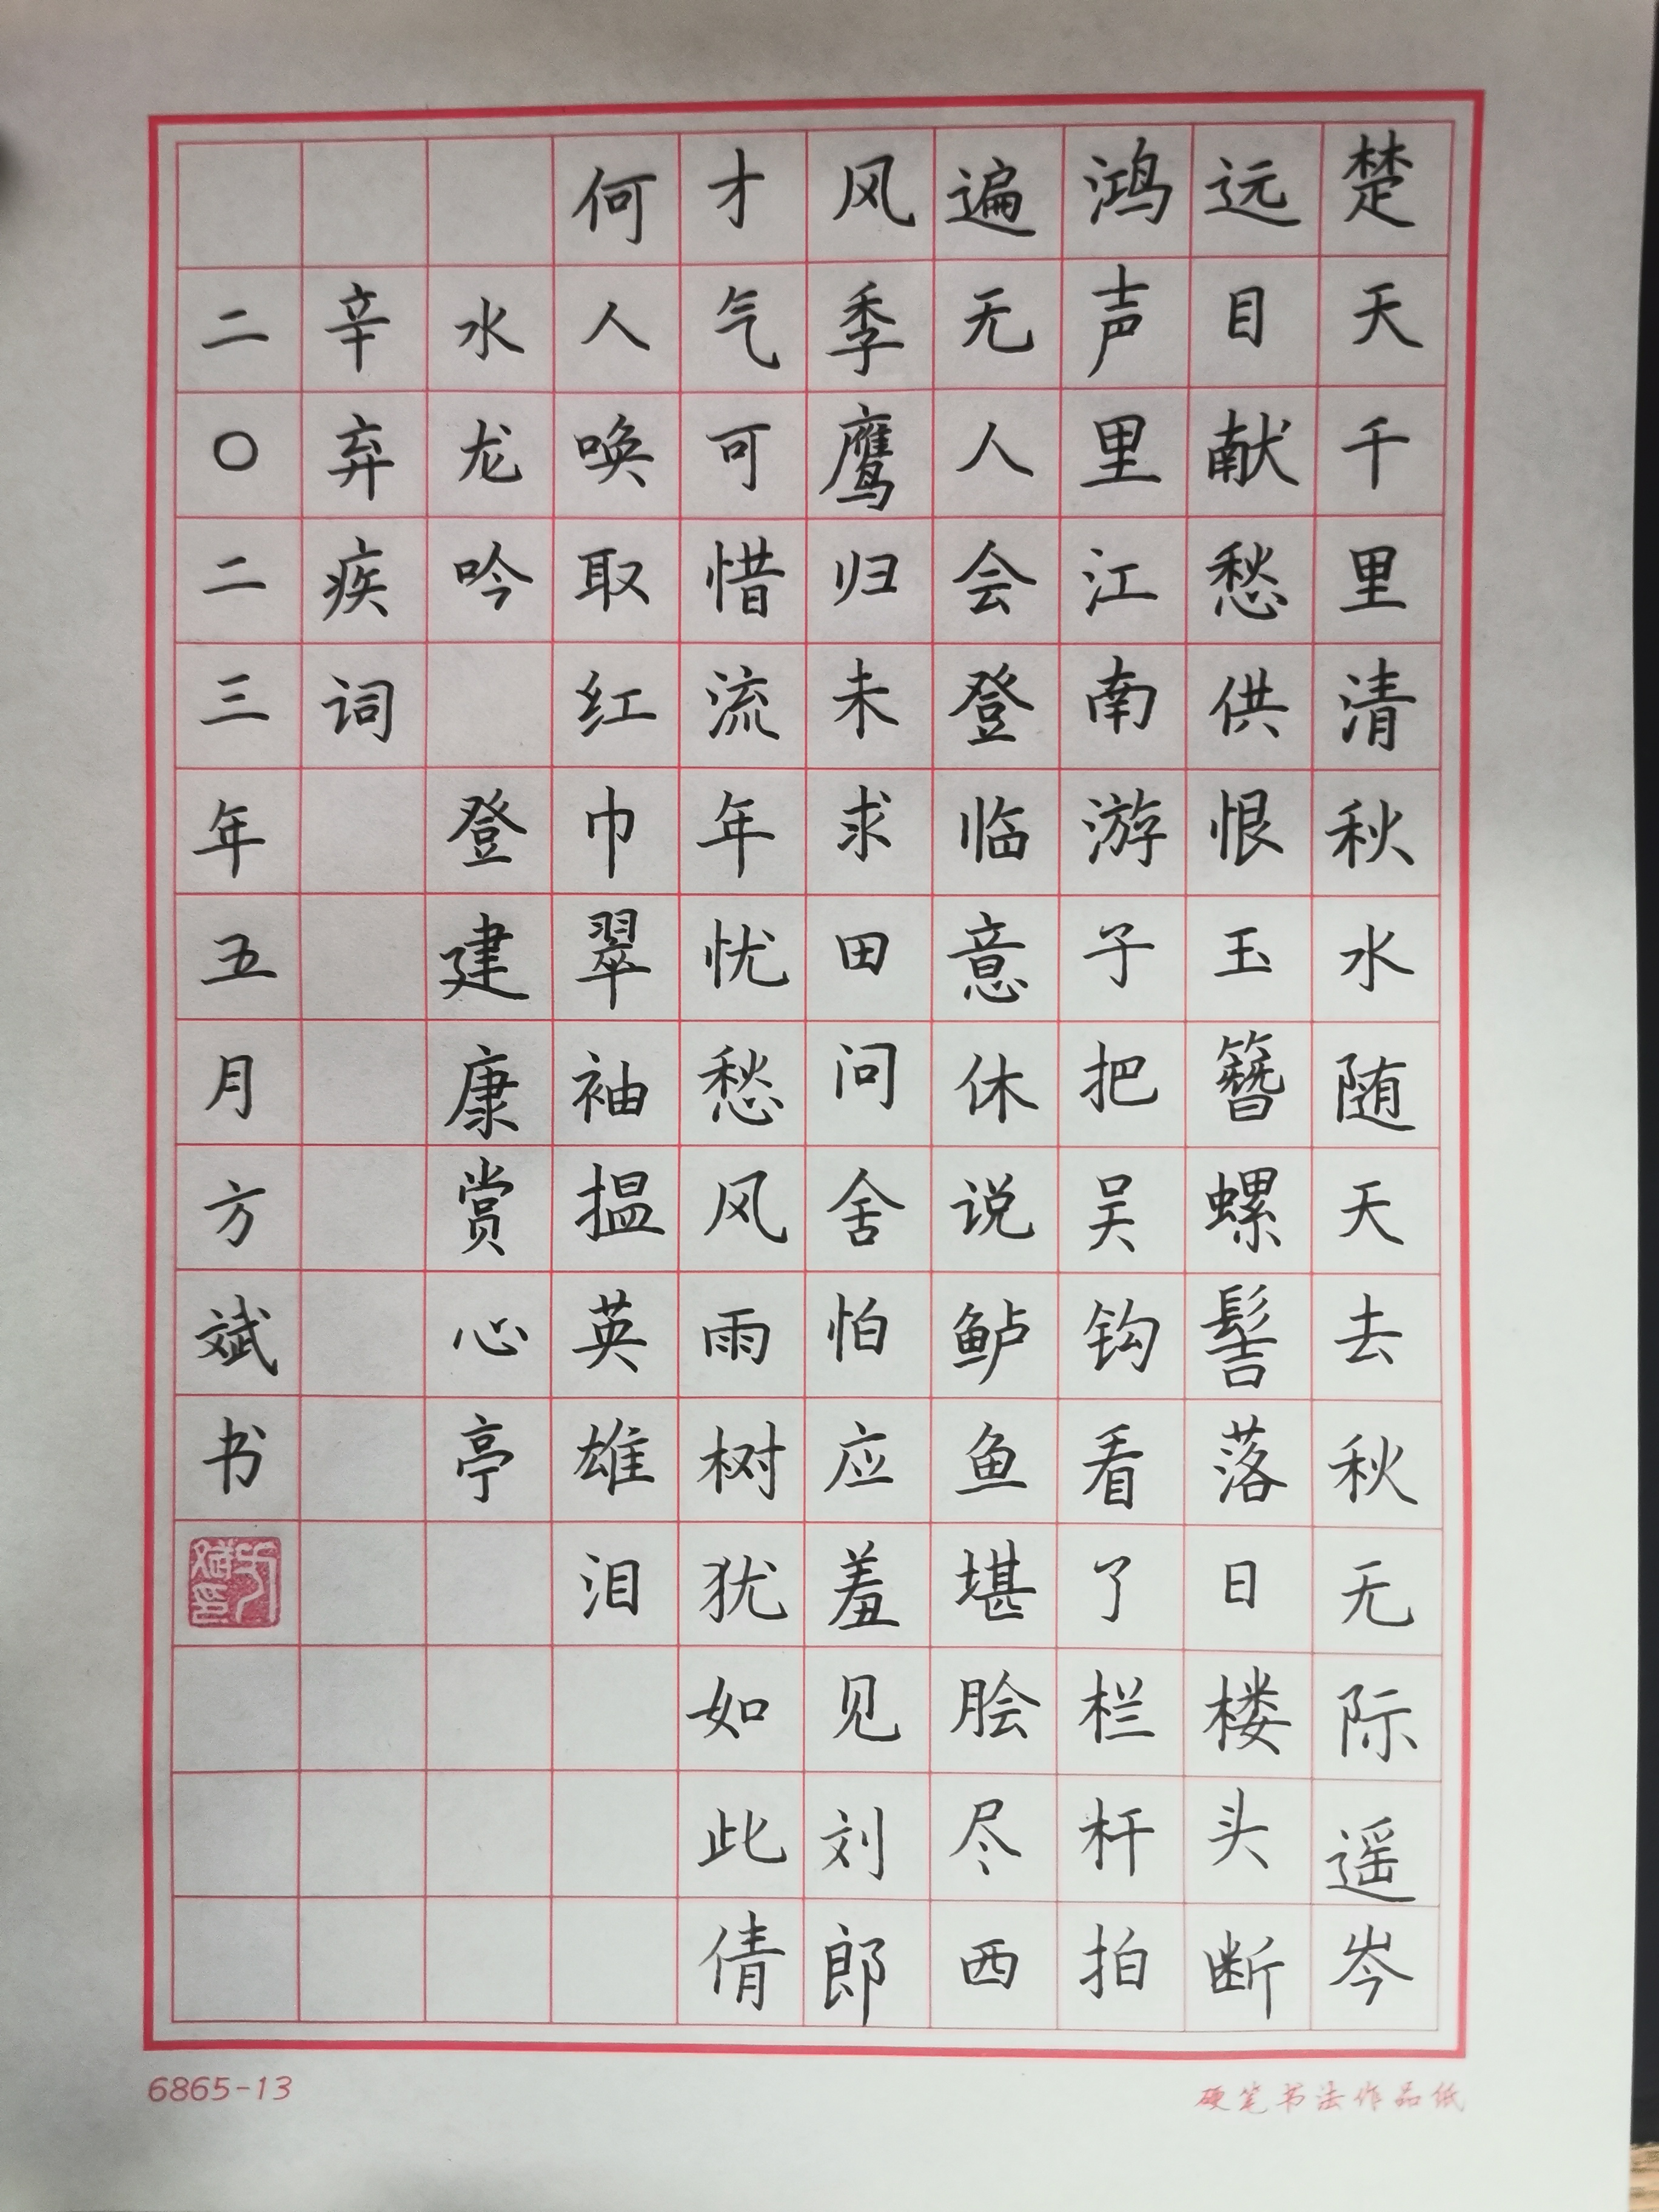 楚天千里清秋水随天去秋无际遥岑
远目献愁供恨玉簪螺髻落日楼头断
鸿声里江南游子把吴钩看了栏杆拍
遍无人会登临意休说鲈鱼堪脍尽西
风季鹰归未求田问舍怕应羞见刘郎
才气可惜流年忧愁风雨树犹如此倩
何人唤取红巾翠袖揾英雄泪
水龙吟 登建康赏心亭
辛弃疾词
二〇二三年五月方斌书
方斌印
6865-13
硬笔书法作品纸